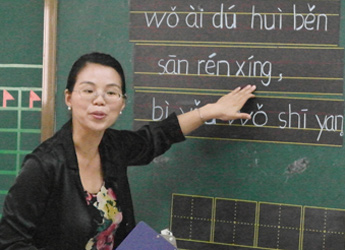 wǒ ài dú huì běn
sān rén xíng,
bì yǒu wǒ shī yan